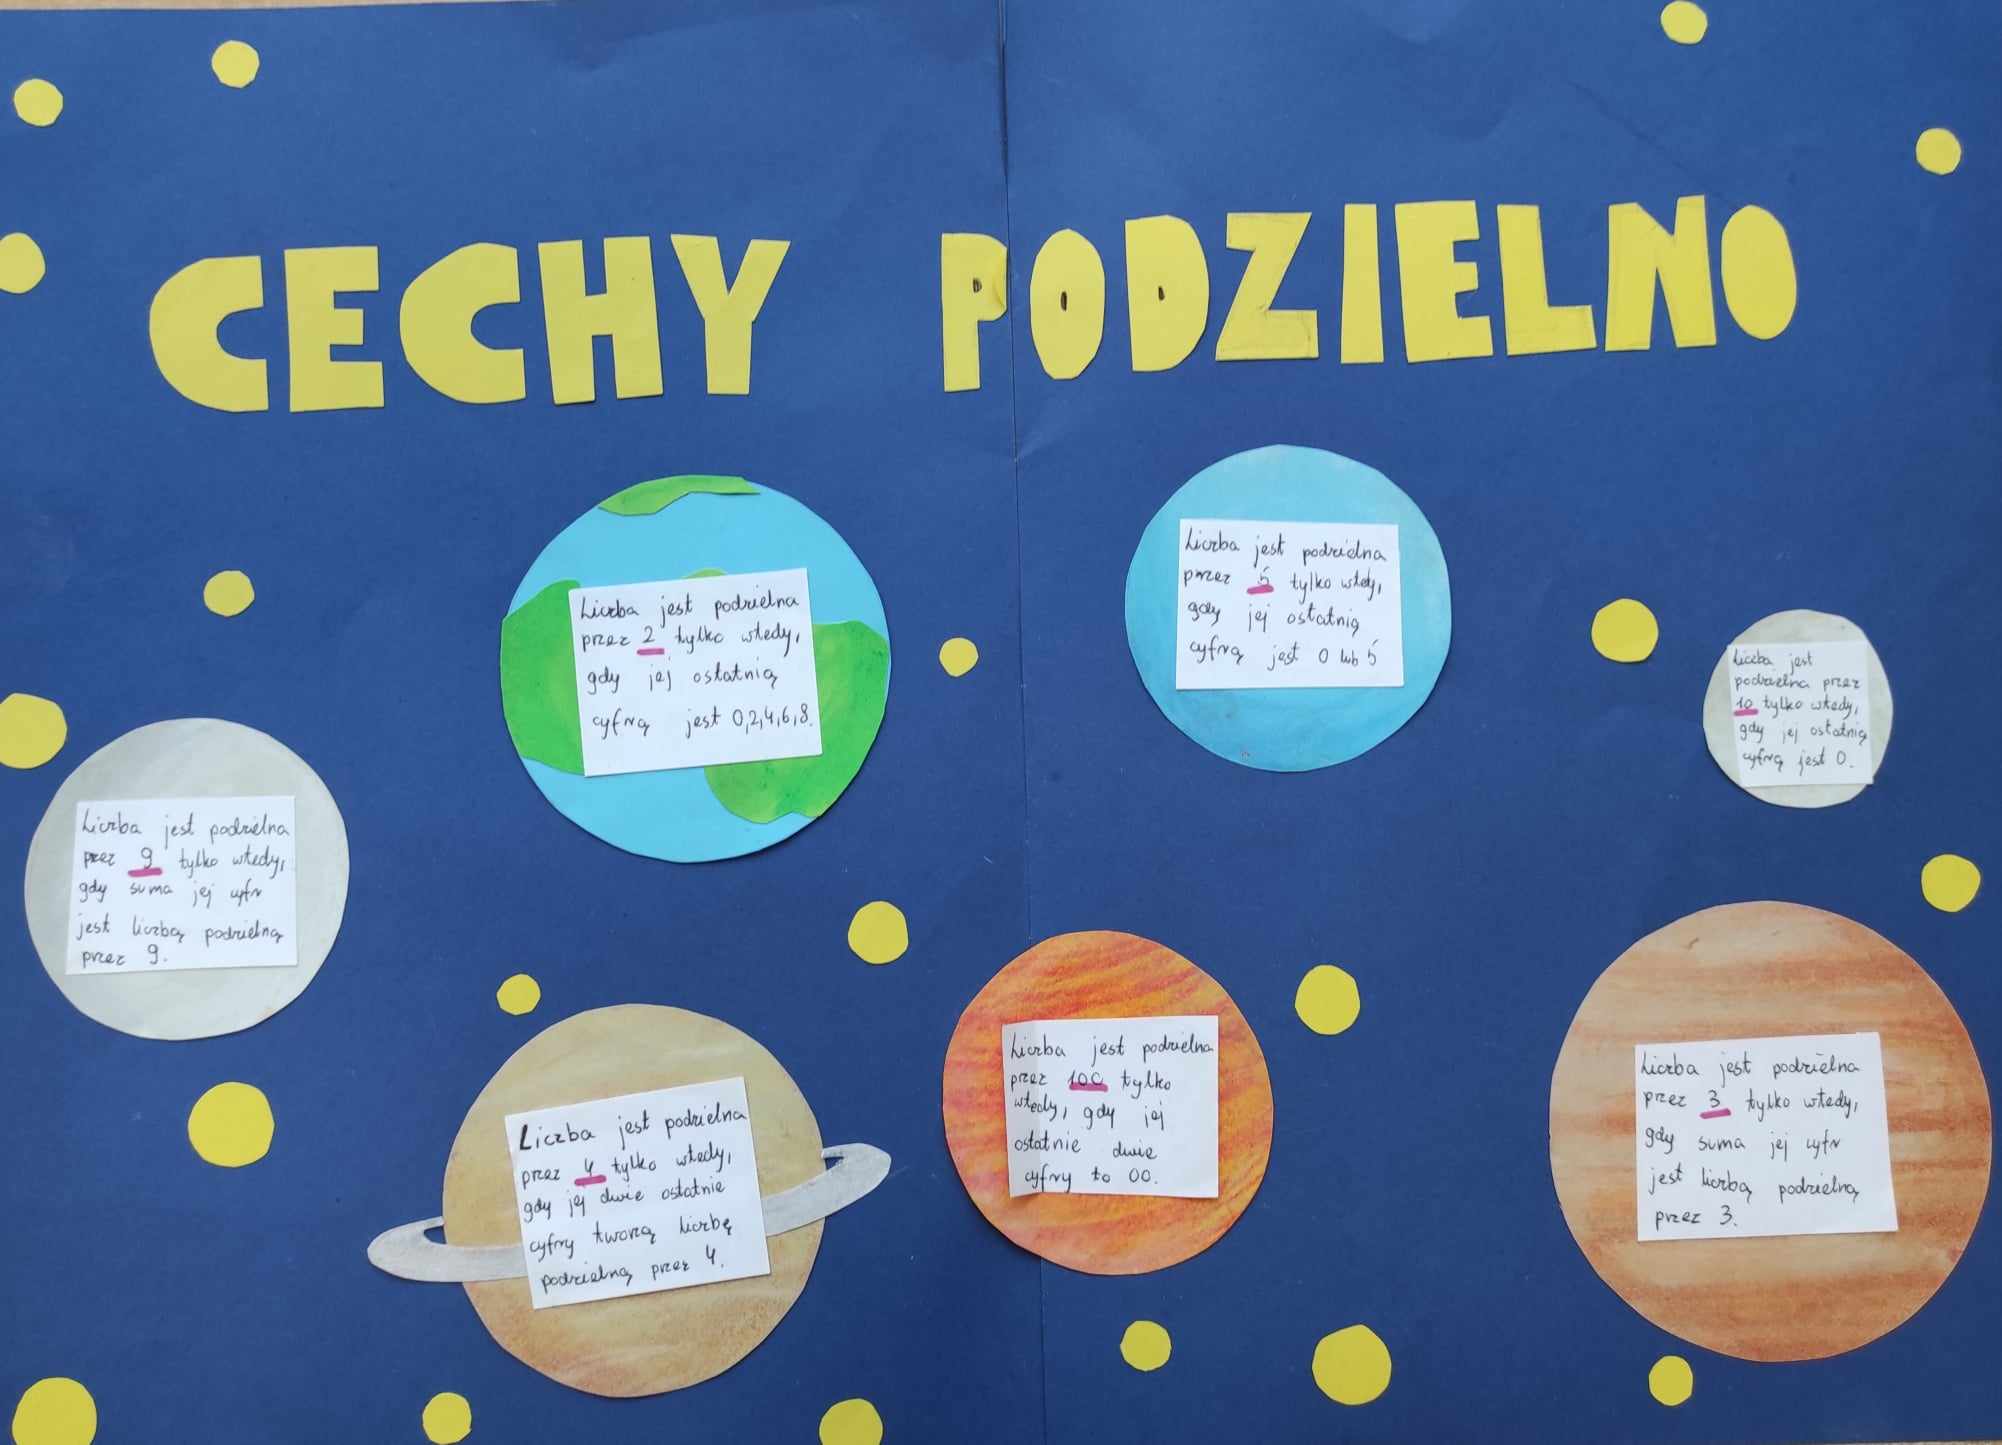 CECHY PODZIELNO
Liczba jest podzielna
przez 2 tylko wtedy,
gdy jej ostatnią
cyfrą jest 0,2,4,6,8.
Liczba jest podzielna
przez 5 tylko wtedy,
gdy jej ostatnią
cyfrą jest 0 lub 5
Liczba jest
podzielna przez
10 tylko wtedy,
gdy jej ostatnią
cyfrą jest 0.
Liczba jest podzielna
przez 9 tylko wtedy,
gdy suma jej cyfr
jest liczbą podzielną
przez 9.
Liczba jest podzielna
przez 4 tylko wtedy,
gdy jej dwie ostatnie
cyfry tworzą liczbę
podzielną przez 4.
Liczba jest podzielna
przez 100 tylko
wtedy, gdy jej
ostatnie dwie
cyfry to 00.
Liczba jest podzielna
przez 3 tylko wtedy,
gdy suma jej cyfr
jest liczbą podzielną
przez 3.